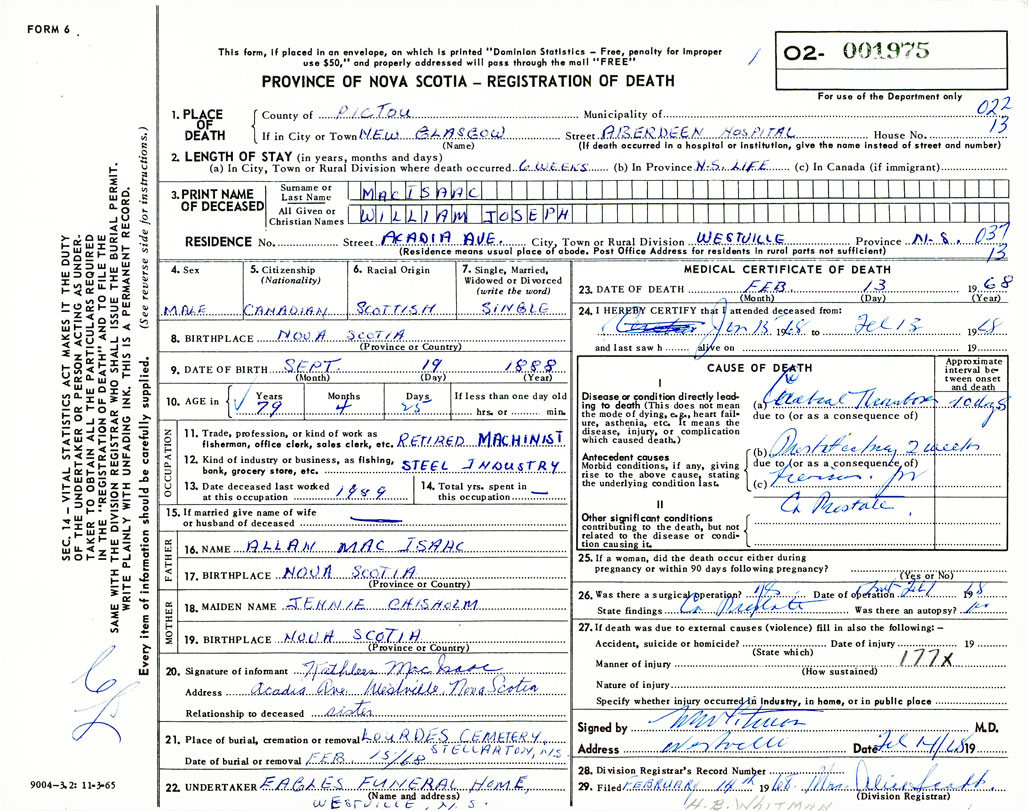 FORM 6
This form, if placed in an envelope, on which is printed "Dominion Statistics – Free, penalty for improper
use $50," and properly addressed will pass through the mail "FREE"
PROVINCE OF NOVA SCOTIA – REGISTRATION OF DEATH
02- 001975
For use of the Department only
022
13
SEC. 14 – VITAL STATISTICS ACT MAKES IT THE DUTY
OF THE UNDERTAKER OR PERSON ACTING AS UNDER-
TAKER TO OBTAIN ALL THE PARTICULARS REQUIRED
IN THE "REGISTRATION OF DEATH" AND TO FILE THE
SAME WITH THE DIVISION REGISTRAR WHO SHALL ISSUE THE BURIAL PERMIT.
WRITE PLAINLY WITH UNFADING INK. THIS IS A PERMANENT RECORD.
Every item of information should be carefully supplied. (See reverse side for instructions.)
1. PLACE OF DEATH
County of PICTOU Municipality of
If in City or Town NEW GLASGOW Street ABERDEEN HOSPITAL House No.
(Name) (If death occurred in a hospital or institution, give the name instead of street and number)
2. LENGTH OF STAY (in years, months and days)
(a) In City, Town or Rural Division where death occurred 6 WEEKS (b) In Province N.S. LIFE (c) In Canada (if immigrant)
3. PRINT NAME OF DECEASED
Surname or Last Name MACISAAC
All Given or Christian Names WILLIAM JOSEPH
RESIDENCE No. Street ACADIA AVE. City, Town or Rural Division WESTVILLE Province N.S.
037
13
(Residence means usual place of abode. Post Office Address for residents in rural parts not sufficient)
4. Sex
MALE
5. Citizenship (Nationality)
CANADIAN
6. Racial Origin
SCOTTISH
7. Single, Married, Widowed or Divorced (write the word)
SINGLE
8. BIRTHPLACE NOVA SCOTIA
(Province or Country)
9. DATE OF BIRTH SEPT. 19 1888
(Month) (Day) (Year)
10. AGE in Years Months Days If less than one day old
79 4 25 hrs. or min.
OCCUPATION
11. Trade, profession, or kind of work as
fisherman, office clerk, sales clerk, etc. RETIRED MACHINIST
12. Kind of industry or business, as fishing,
bank, grocery store, etc. STEEL INDUSTRY
13. Date deceased last worked
at this occupation 1989
14. Total yrs. spent in
this occupation —
15. If married give name of wife
or husband of deceased —
FATHER
16. NAME ALLAN MAC ISAAC
17. BIRTHPLACE NOVA SCOTIA
(Province or Country)
MOTHER
18. MAIDEN NAME JENNIE CHISHOLM
19. BIRTHPLACE NOVA SCOTIA
(Province or Country)
20. Signature of informant Kathleen MacIsaac
Address Acadia Ave. Westville, Nova Scotia
Relationship to deceased sister
21. Place of burial, cremation or removal LOURDES CEMETERY,
STELLARTON, N.S.
Date of burial or removal FEB. 15/68
22. UNDERTAKER EAGLES FUNERAL HOME,
(Name and address)
WESTVILLE, N.S.
9004-3.2: 11-3-65
MEDICAL CERTIFICATE OF DEATH
23. DATE OF DEATH FEB 13 1968
(Month) (Day) (Year)
24. I HEREBY CERTIFY that I attended deceased from:
Jan 13 1968 to Feb 13 1968
and last saw h alive on 19
CAUSE OF DEATH
Approximate interval between onset and death
I
Disease or condition directly lead-
ing to death (This does not
mean the mode of dying, e.g., heart fail-
ure, asthenia, etc. It means the
disease, injury, or complication
which caused death.)
(a) Cerebral Thrombosis 10 days
due to (or as a consequence of)
Antecedent causes
Morbid conditions, if any, giving
rise to the above cause, stating
the underlying condition last.
(b) Prostatectomy 2 weeks
due to (or as a consequence of)
(c)
II
Ca Prostate
Other significant conditions
contributing to the death, but not
related to the disease or condi-
tion causing it.
25. If a woman, did the death occur either during
pregnancy or within 90 days following pregnancy?
(Yes or No)
26. Was there a surgical operation? yes Date of operation Feb 1 1968
State findings Ca Prostate Was there an autopsy? no
27. If death was due to external causes (violence) fill in also the following:–
Accident, suicide or homicide? Date of injury 19
(State which)
177X
Manner of injury
(How sustained)
Nature of injury
Specify whether injury occurred in Industry, in home, or in public place
Signed by M.D.
Address Westville Date Feb 14/68 19
28. Division Registrar's Record Number
29. Filed FEBRUARY 14th 1968. Mrs.
(Division Registrar)
H.B. WHITMAN